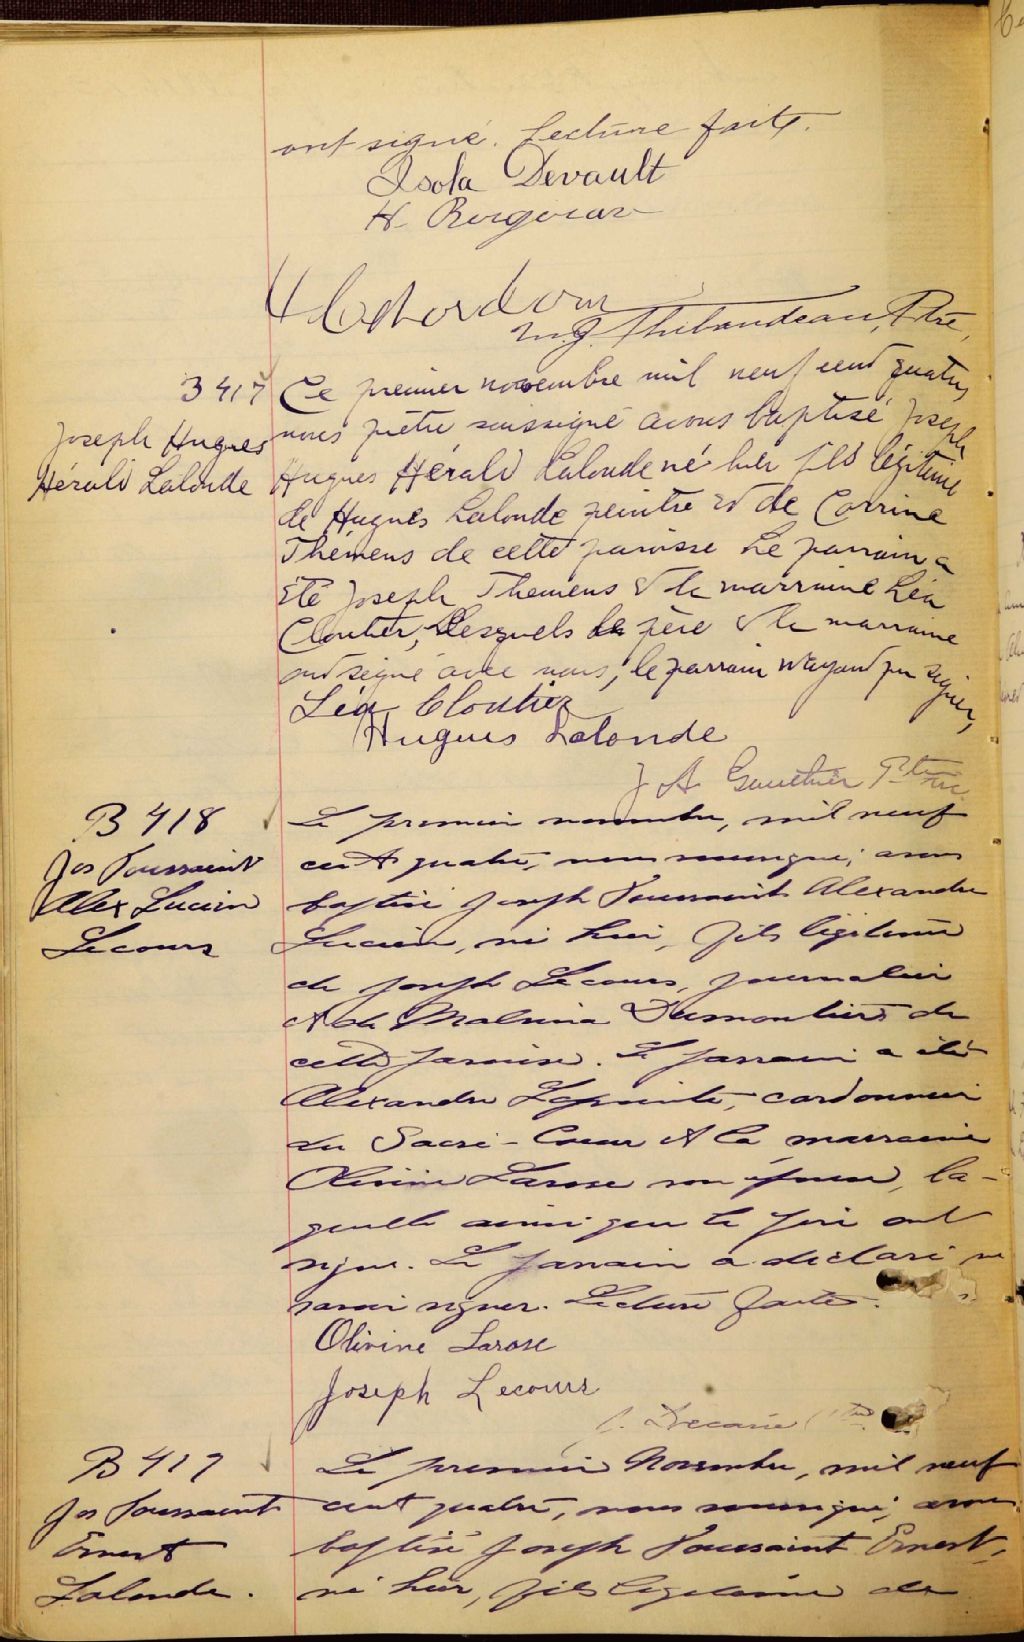 ont signé. Lecture faite.
Isola Devault
H.
Ptre,
B 417
Joseph Hugues
Hérald Lalonde
Ce premier novembre mil neuf cent quatre,
nous prêtre soussigné avons baptisé Joseph
Hugues Hérald Lalonde né hier fils légitime
de Hugues Lalonde peintre et de Corrine
Thémens de cette paroisse Le parrain a
été Joseph Themens & la marraine Léa
Cloutier, Lesquels le père & la marraine
ont signé avec nous, le parrain n'ayant pu signer,
Léa Cloutier
Hugues Lalonde
J A Gauthier Ptre
B 418
Jos Toussaint
Alex Lucien
Lecours
Le premier novembre, mil neuf
cent quatre, nous soussigné, avons
baptisé Joseph Toussaint Alexandre
Lucien, né hier, fils légitime
de Joseph Lecours, journalier
et de Malvina Dumoutier de
cette paroisse. Le parrain a été
Alexandre Lapointe, cordonnier
du Sacré-Coeur et la marraine
Olivine Larose son épouse, la-
quelle ainsi que le père ont
signé. Le parrain a déclaré ne
savoir signer. Lecture faite.
Olivine Larose
Joseph Lecours
Decarie Ptre
B 419
Jos Toussaint
Ernest
Lalonde.
Le premier Novembre, mil neuf
cent quatre, nous soussigné, avons
baptisé Joseph Toussaint Ernest,
né hier, fils légitime de